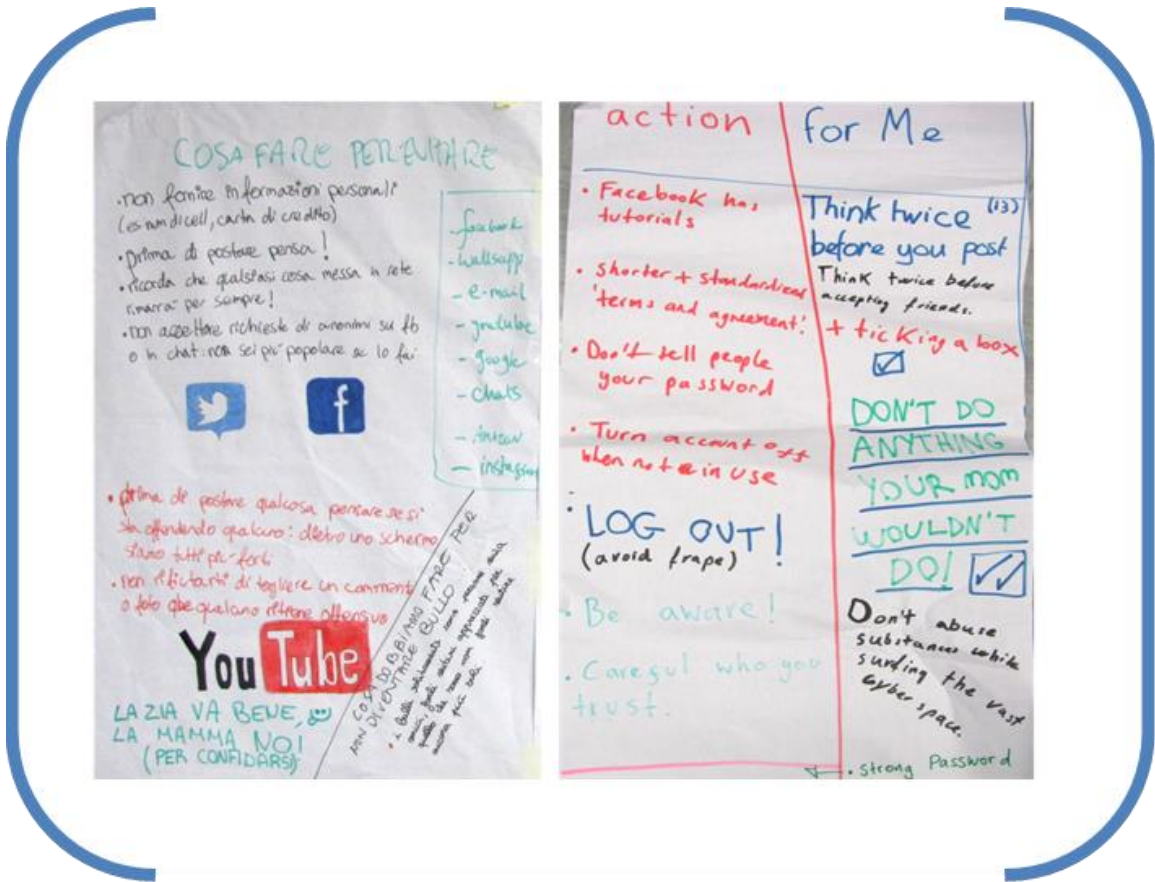 COSA FARE PER EVITARE
• non fornire informazioni personali
(es num di cell, carta di credito)
• prima di postare pensa!
• ricorda che qualsiasi cosa messa in rete
rimarra' per sempre!
• non accettare richieste di anonimi su fb
o in chat: non sei piu' popolare se lo fai
- facebook
- e-mail
- youtube
- google
- chats
- instagram
f
• prima di postare qualcosa pensare se si
sta offendendo qualcuno: dietro uno schermo
siamo tutti piu' forti
• non rifiutarti di togliere un commento
o foto che qualcuno ritiene offensivo
YouTube
LA ZIA VA BENE,
LA MAMMA NO!
(PER CONFIDARSI)
COSA DOBBIAMO FARE PER
NON DIVENTARE BULLO!
action
• Facebook has
tutorials
• shorter + standardized
'terms and agreement'.
• Don't tell people
your password
• Turn account off
when not in use
LOG OUT!
(avoid frape)
• Be aware!
• Careful who you
trust.
for Me
Think twice (13)
before you post
Think twice before
accepting friends.
+ ticking a box
DON'T DO
ANYTHING
YOUR MOM
WOULDN'T
DO!
Don't abuse
substances while
surfing the vast
cyber space.
• strong Password